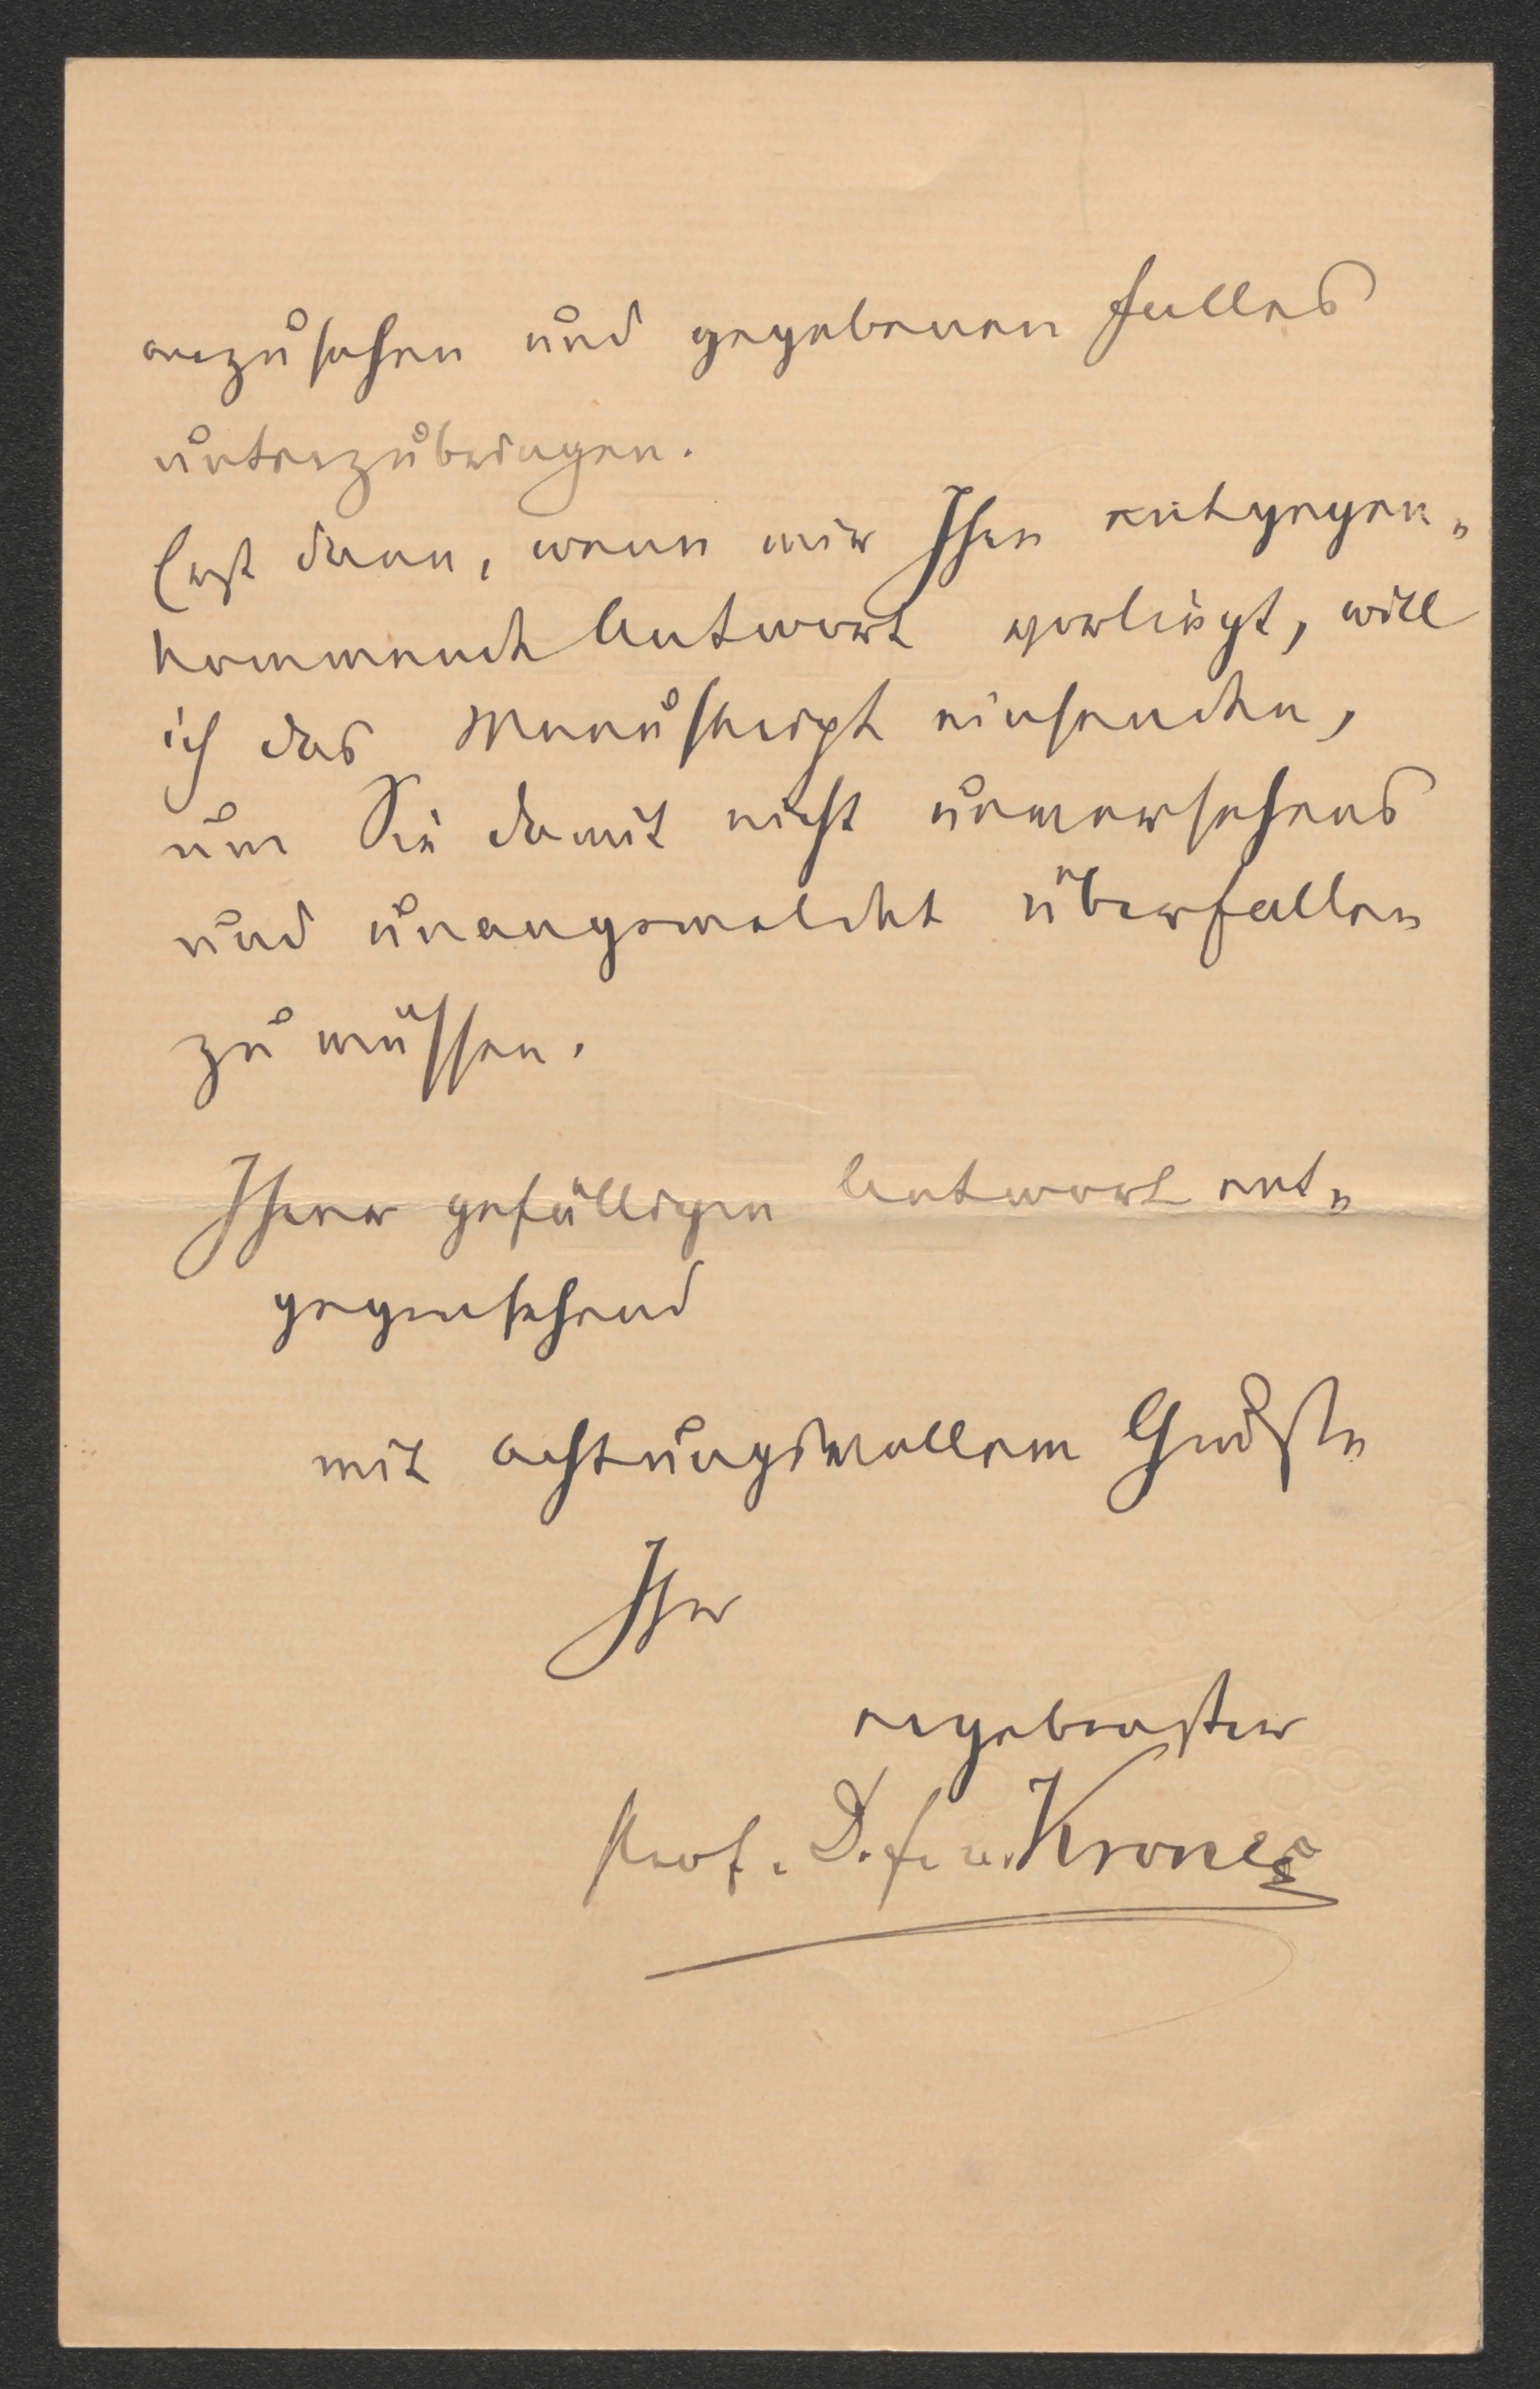 anzusehen und gegebenen Falles
unterzubringen.
Erst dann, wenn mir Ihre entgegen-
kommende Antwort vorliegt, will
ich das Manuskript einsenden,
um Sie damit nicht unversehens
und unangemeldet überfallen
zu müssen.
Ihrer gefälligen Antwort ent-
gegensehend
mit achtungsvollem Gruße
Ihr
ergebenster
Prof. D. F. v. Krones